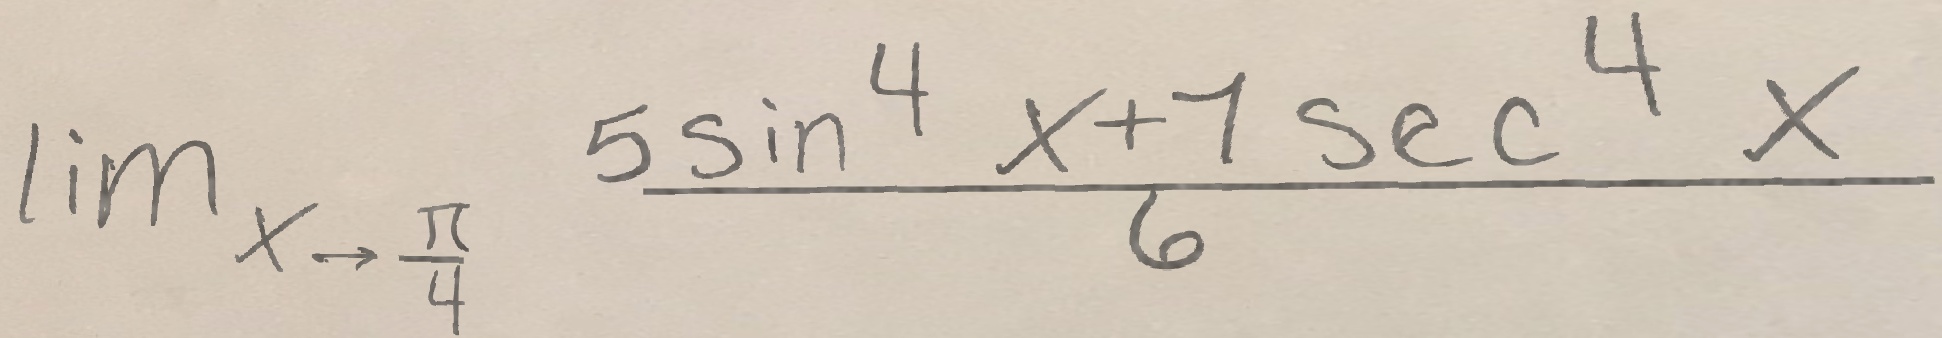 lim_{x→\frac{π}{4}} \frac{5 sin^4 x + 7 sec^4 x}{6}